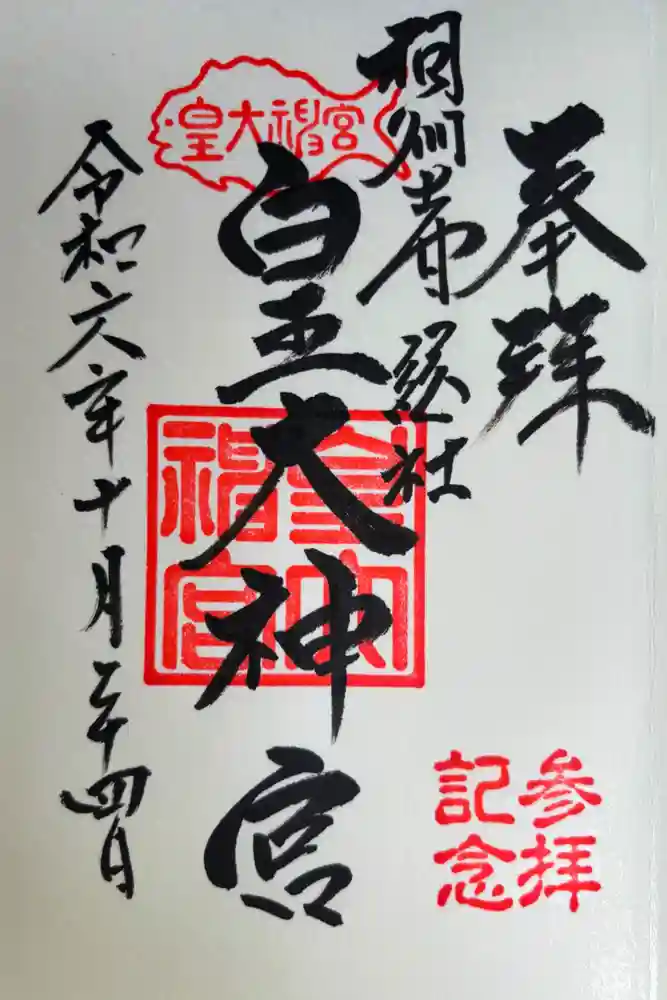 奉拝
相州土甘総社
皇大神宮
皇大神宮
皇大神宮
令和六年十月二十四日
参拝
記念